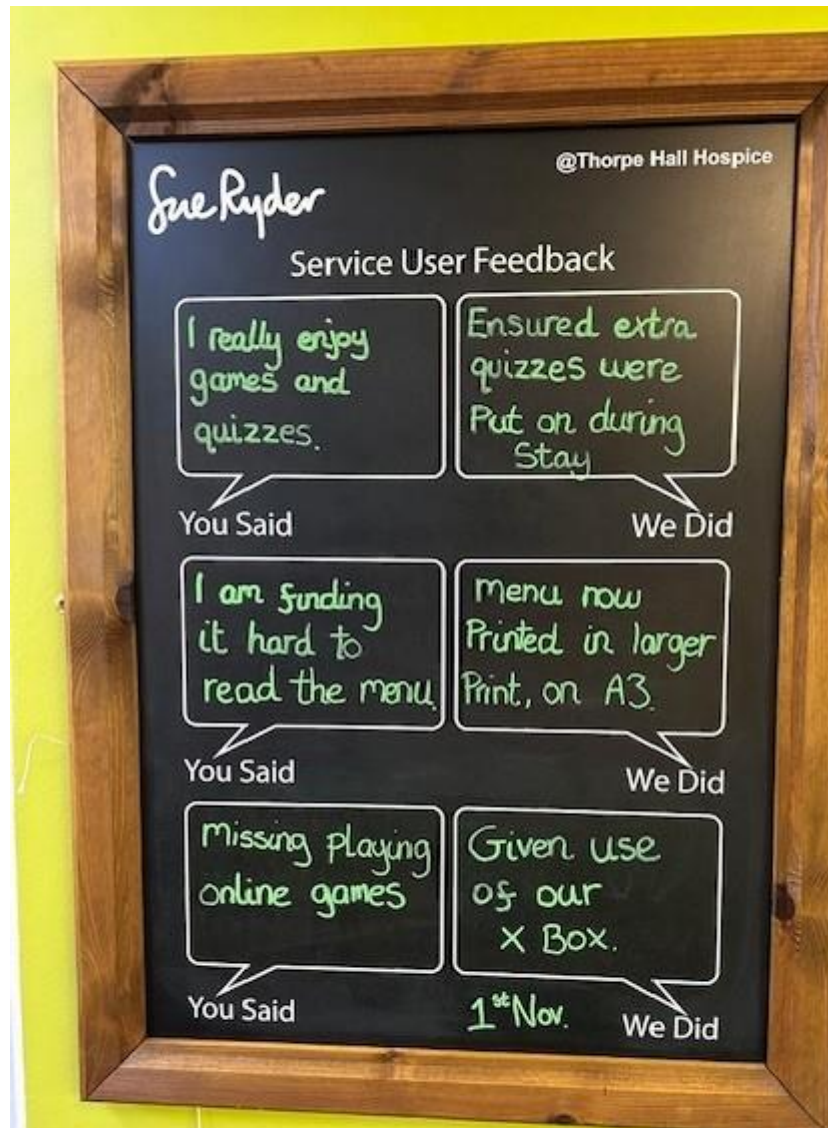 @Thorpe Hall Hospice
Sue Ryder
Service User Feedback
I really enjoy
games and
quizzes.
You Said
Ensured extra
quizzes were
Put on during
Stay
We Did
I am funding
it hard to
read the menu.
You Said
menu now
Printed in larger
Print, on A3.
We Did
Missing playing
online games
You Said
Given use
of our
X Box.
1st Nov.
We Did